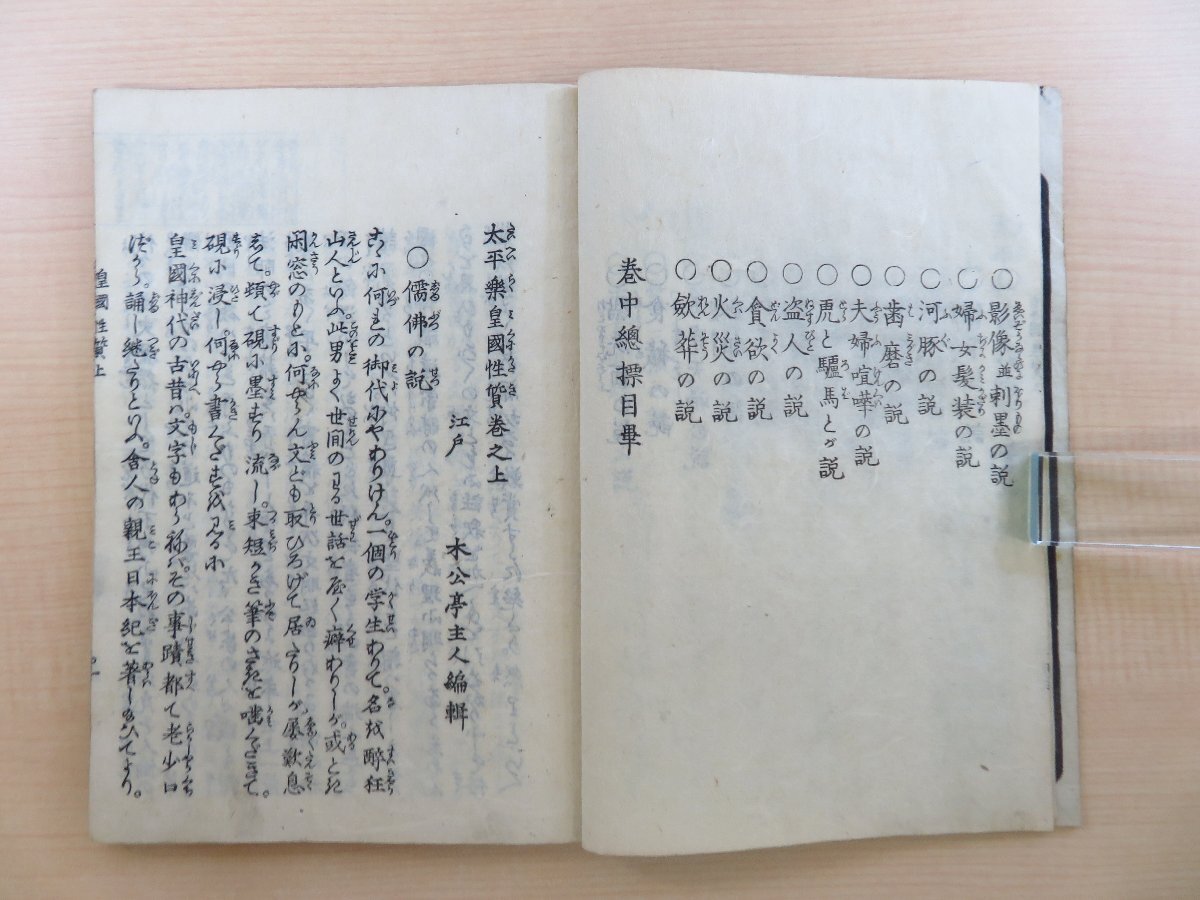 ○影像並刺墨の説
○婦女髪装の説
○河豚の説
○歯磨の説
○夫婦喧嘩の説
○虎と驢馬とが説
○盗人の説
○貪欲の説
○火災の説
○斂葬の説
巻中總標目畢
太平樂皇國性質巻之上
江戸 木公亭主人編輯
○儒佛の説
何れの御代にやありけん。一個の学生ありて。名を醉狂
山人といふ此男よく世間のわる世話を屋く癖ありしが。或とき
閑窓のもとに。何やらん文とも取ひろげて居たりしが。屡歎息
して。頓て硯に墨すり流し。束短かき筆のさきを噛くだきて。
硯に浸し。何やら書くだすを見るに
皇國神代の古昔は文字もあらねば。その事蹟都て老少口
づから。誦し継たりといふ。舎人の親王日本紀を著し給ひてより。
皇國性質上